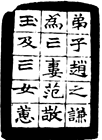 弟子趙之謙
爲三妻范敬
玉及三女蕙